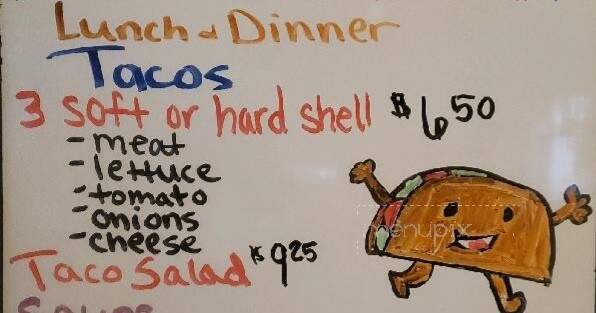 Lunch & Dinner
Tacos
3 soft or hard shell $6 50
- meat
- lettuce
- tomato
- onions
- cheese
Taco Salad $9 25
menupix